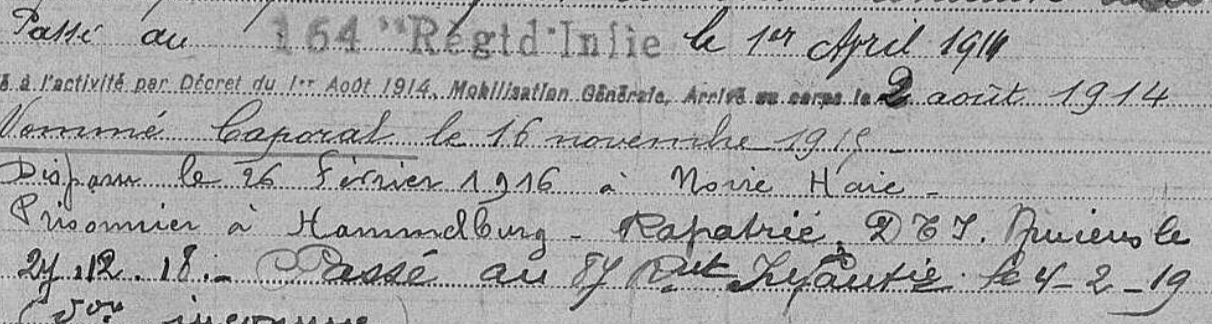 Passé au 154 "Régt d'Infie le 1er April 1914
é à l'activité par Décret du 1er Août 1914, Mobilisation Générale, Arrivé au corps le 2 août 1914
Nommé Caporal le 16 novembre 1915
Disparu le 26 Février 1916 à Noire Haie -
Prisonnier à Hammelburg - Rapatrié, D T I. Amiens le
27.12.18.- Passé au 87 Rgt Infantie le 4-2-19
inconnue)